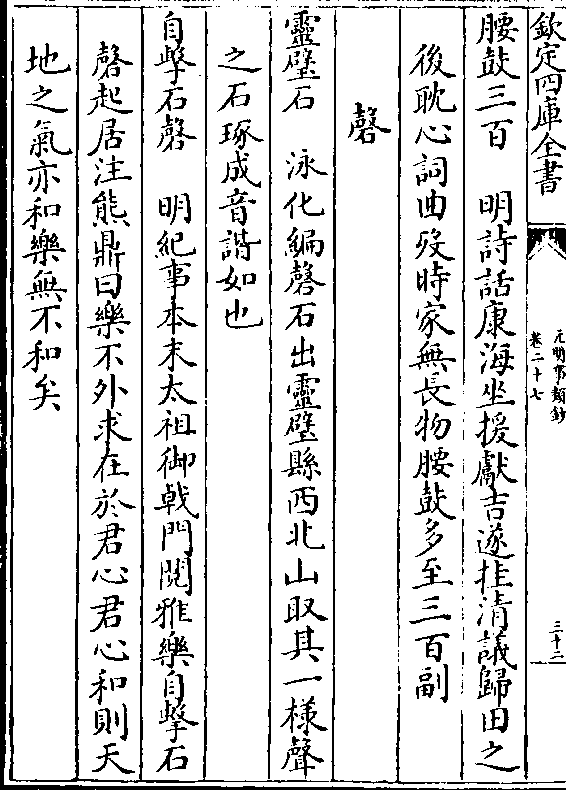 欽定四庫全書
元明事類鈔
卷二十七
三十二
腰鼓三百　明詩話康海坐援獻吉遂挂清議歸田之
後耽心詞曲歿時家無長物腰鼓多至三百副
磬
靈璧石　泳化編磬石出靈璧縣西北山取其一樣聲
之石琢成音諧如也
自擊石磬　明紀事本末太祖御戟門閱雅樂自擊石
磬起居注熊鼎曰樂不外求在於君心君心和則天
地之氣亦和樂無不和矣